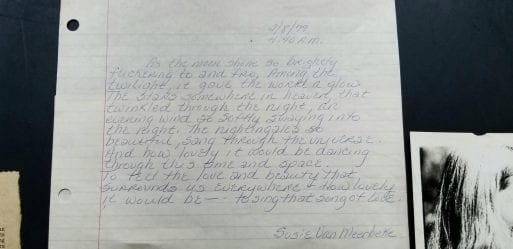 2/8/79
4:40 A.M.
As the moon shone so brightly
flickering to and fro, Among the
twilight, it gave the world a glow
The stars somewhere in heaven, that
twinkled through the night, an
evening wind so softly swaying into
the night. The nightingales so
beautiful, sang through the universe.
And how lovely it would be dancing
through this time and space.
To feel the love and beauty that
surrounds us everywhere & how lovely
it would be — to sing that song of love.
Susie Van Meerbeke